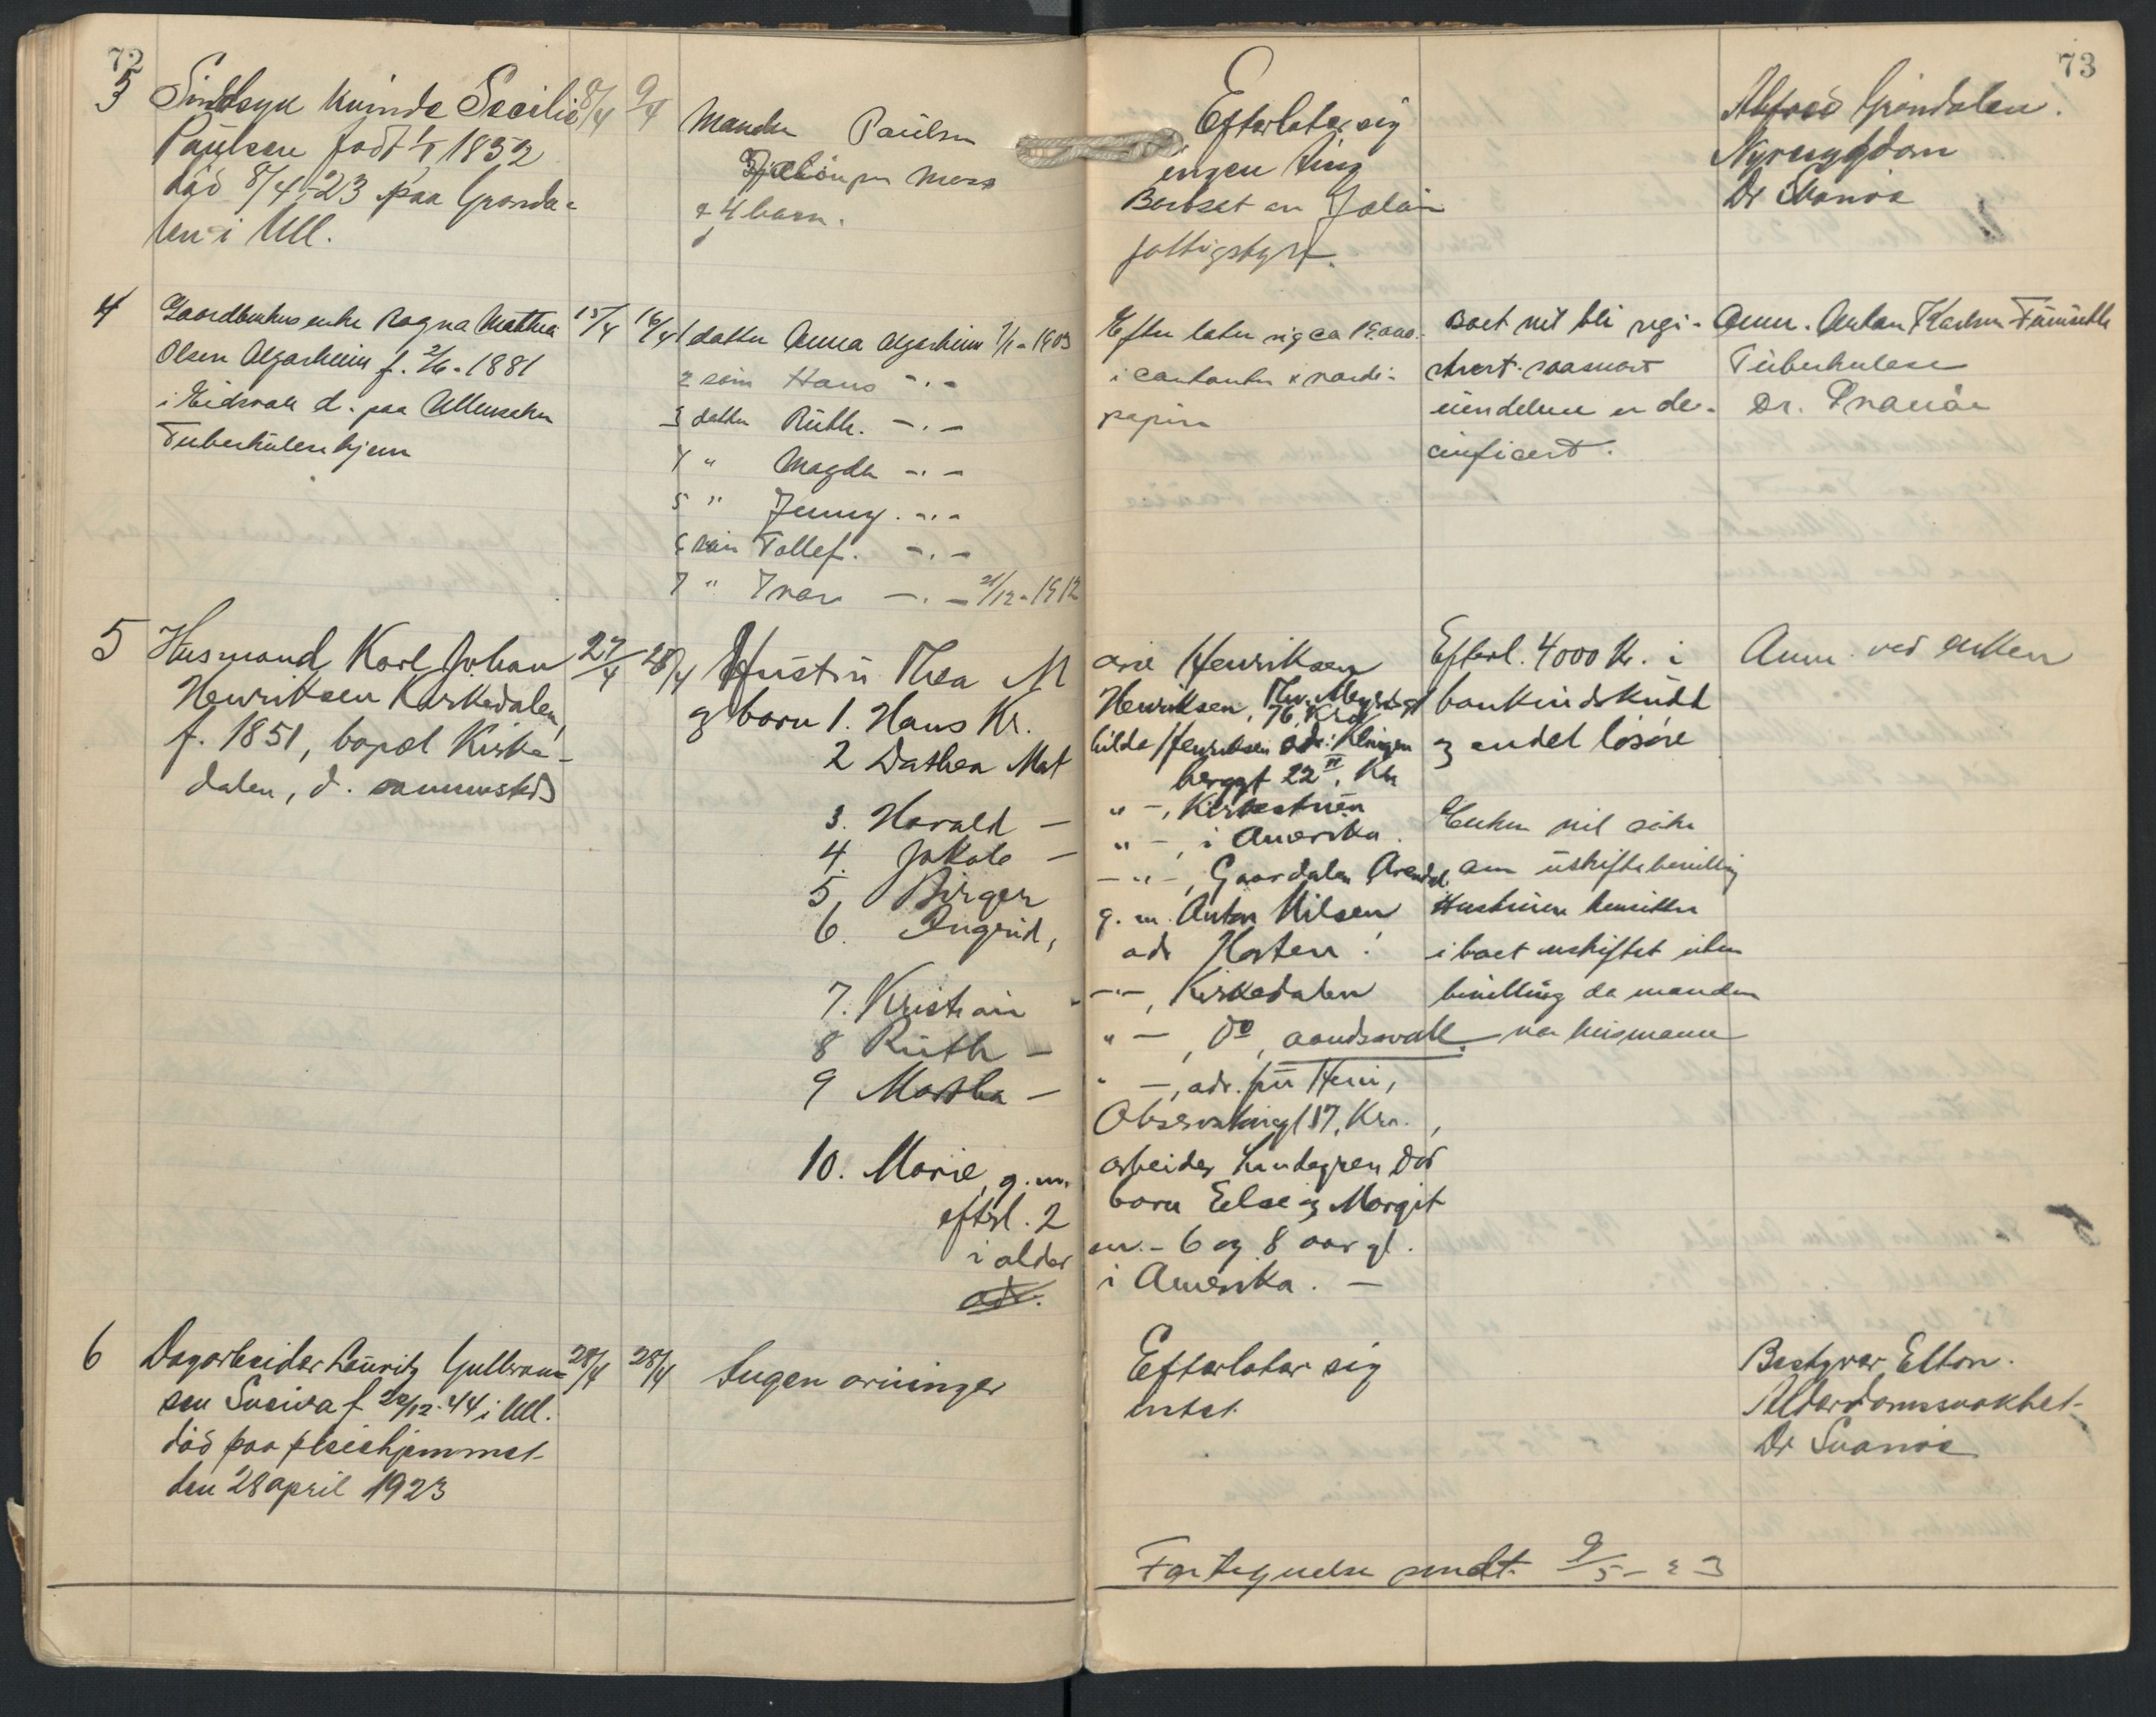 72
3 Sindsyk kvinde Secilie 8/4 9/4
Paulsen født 1/1 1852
død 8/4-23 paa Grønda-
len i Ull.
Manden Paulsen
pr Moss
& 4 barn.
4 Gaardbrukerenke Ragna Mathea 15/4 16/4
Olsen Algarheim f. 2/6-1881
i Eidsvoll d. paa Ullensaker
Tuberkulosehjem
1 datter Anna Algarheim 1/1-1903
2 søn Hans -"-
3 datter Ruth. -"-
4 " Magda -"-
5 " Jenny. -"-
6 søn Tollef. -"-
7 " Ivar -"- 21/12-1912
5 Husmand Karl Johan 27/4 28/4
Henriksen Kirkedalen,
f. 1851, bopæl Kirke-
dalen, d. sammesteds
Hustru Thea M
og born 1. Hans Kr.
2 Dathea Mat
3. Harald -
4. Jakob -
5, Birger
6. Ingrid,
7. Kristian "
8 Ruth -
9 Martha -
10. Marie, g.m.
efterl. 2
i alder
adr.
6 Dagarbeider Lauritz Gulbran- 28/4 28/4
sen Sneiva f 20/12-44 i Ull.
død paa pleiehjemmet
den 28 april 1923
Ingen arvinger
73
Efterlater sig
ingen ting
Borbset en Jaløn
fattigstyre.
Alfred Grøndalen.
Nyresygdom
Dr Svanøe
Efter later sig ca 15.000.
i contanter & værdi-
papirer
Boet vil bli regi-
strert saasnart
eiendelene er de-
cinficert.
Anm. Anton Karlsen Furuseth
Tuberkulose
Dr. Svanøe
arie Henriksen
Henriksen, Thv. Meyersgt
76, Kra
hilde Henriksen adr: Klingen
berggt 22 II, Kra
" -, Kirkestuen
" -, i Amerika.
-"-, Gaardalen Arendal
g. m. Anton Nilsen
adr Horten!
-"-, Kirkedalen
" -, Do, aandssvak.
" -, adr. fru Heni,
Observatoriegt 17, Kra.,
arbeider Lundegren død
born Else og Margit
en - 6 og 8 aar gl.
i Amerika. -
Efterl. 4000 Kr. i
bankindskudd
og endel løsøre
Enken vil søke
om uskiftebevilling
Hustruen hensitter
i boet uskiftet uten
bevilling da manden
var husmann
Anm. ved enken
Efterlater sig
intet
Bestyrer Elton.
Alderdomssvakhet
Dr Svanøe
Fortegnelse sendt 9/5-23